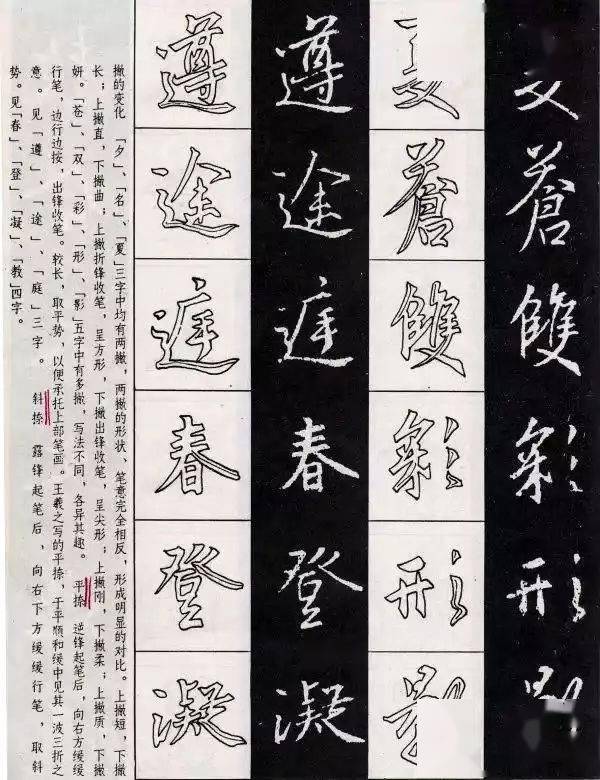 蒼雙彩形
蒼雙彩形
遵途庭春登凝
遵途庭春登凝
撇的变化 「夕」、「名」、「夏」三字中均有两撇,两撇的形状、笔意完全相反,形成明显的对比。上撇短,下撇
长;上撇直,下撇曲;上撇折锋收笔,呈方形,下撇出锋收笔,呈尖形;上撇刚,下撇柔;上撇质,下撇
妍。「苍」、「双」、「彩」、「形」、「影」五字中有多撇,写法不同,各异其趣。 平捺 逆锋起笔后,向右方缓缓
行笔,边行边按,出锋收笔。较长,取平势,以便承托上部笔画。王羲之写的平捺,于平顺和缓中见其一波三折之
意。见「遵」、「途」、「庭」三字。 斜捺 露锋起笔后,向右下方缓缓行笔,取斜
势。见「春」、「登」、「凝」、「教」四字。